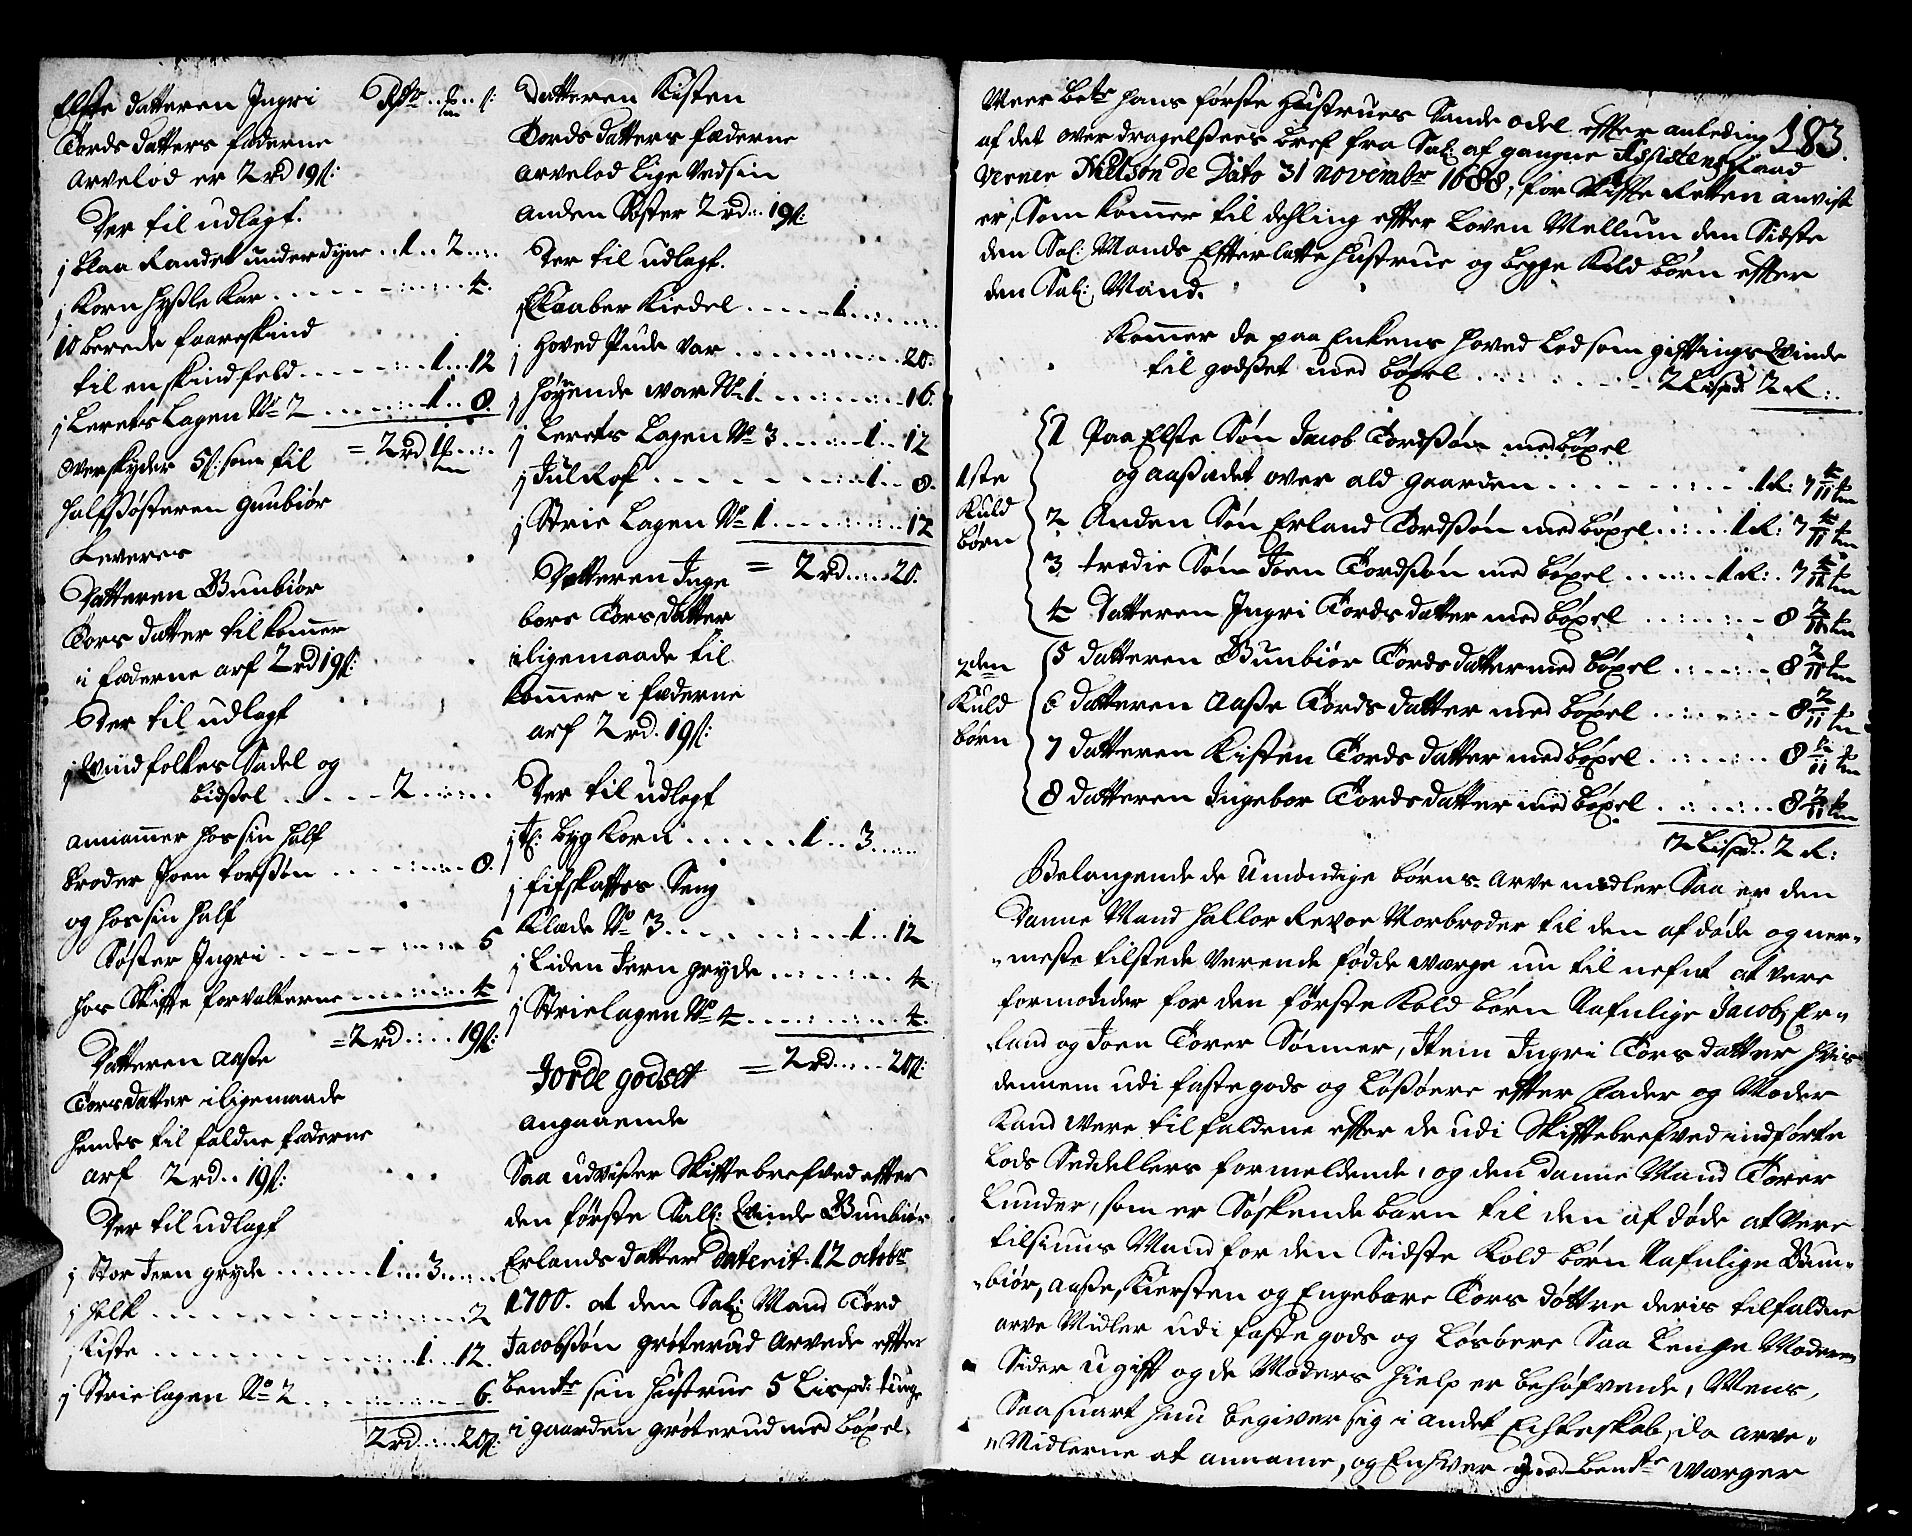 Elste datteren Ingri Rdr .. ß:
Tords datters fæderne
Arvelod er 2 rd 19 ß:
Der til udlagt.
j blaa Randet underdyne .. 1 .. 2 ....
j Korn Kar ........ 4.
10 berede faareskind
til en skindfeld ........ 1 .. 12
j Lerets Lagen No 2 ........ 1 .. 8.
= 2 rd 1
overskyder 5 ß: som til
halfsøsteren Gunbiør
Leveres
Datteren Gunbiør
Tors datter tilkommer
i fæderne arf 2 rd 19 ß:
Der til udlagt
j Qvindfolkes Sadel og
bidssel ...... 2 ....
annammer hos sin half
broder Joen torssøn ........ 8.
og hos sin half
Søster Ingri ........ 5
hos Skifte forvalterne ........ 4
= 2 rd .... 19 ß:
Datteren Aasse
Torsdatter iligemaade
hendes til faldne fæderne
arf 2 rd .. 19 ß:
Der til udlagt
j Stor Jern gryde ........ 1 .. 3 ....
j ........ 2
j Kiste ........ 1 .. 12.
j Strie lagen No 2 ........ 6.
2 rd .... 20 ß:
Datteren Kisten
Tordsdatters fæderne
arvelod Lige ved sin
anden Søster 2 rd .. 19 ß:
Der til udlagt.
j Kaaber Kiedel ...... 1 ......
j Hoved Pude var ........ 20.
j høyende war No 1 ........ 16.
j Lerets Lagen No 3 ...... 1 .. 12
j ...... 1 .. 8.
j Strie Lagen No 1 ........ 12
= 2 rd .... 20.
Datteren Inge
bors Torsdatter
iligemaade til
kommer i fæderne
arf 2 rd. 19 ß:
Der til udlagt
j t: byg Korn ...... 1 .. 3 ....
j Seng
Klæde No 3 ........ 1 .. 12
j Liden Jern gryde ........ 4
j Strielagen No 4 ........ 4.
= 2 rd .... 20 ß:
Jorde godset
angaaende
Saa udvisser Skiftebrefved efter
den første Sal: Qvinde Gunbiør
Erlands datter daterit. 12 octobr
1700. at den Sal: Mand Tord
Jacobssøn grøterud arvede efter
bemte sin hustrue 5 Lispd: tunge
i gaarden grøterud med bøxel.
183.
Meer bete hans første Hustrues Sande odel efter anleding
af det overdragelssees bref fra Sal: afgangne
verner Nielsøn de Dato 31 novembr 1688, for Skifte Retten anvist
er, Som kommer til dehling efter Loven Mellum den Sidste
den Sal: Mands Efterlatte Hustrue og begge Kuld børn efter
den Sal: Mand.
Kommer da paa Enkens Hoved Lod som giftings Qvinde
til godsset med bøxel ...... 2 Lispd. 2 R:
1ste
Kuld
børn
1 Paa Elste Søn Jacob Tordssøn med bøxel
og aassædet over ald gaarden ...... 1 R: 7 4/11
2 Anden Søn Erland Tordssøn med bøxel ...... 1 R: 7 4/11
3 tredie Søn Joen Tordssøn med bøxel ...... 1 R: 7 4/11
4 Datteren Ingri Tords datter med bøxel ...... 8 2/11
2den
Kuld
børn
5 datteren Gunbiør Tordsdatter med bøxel ...... 8 2/11
6 datteren Aasse Tords datter med bøxel ...... 8 2/11
7 datteren Kisten Tords datter med bøxel ...... 8 2/11
8 datteren Ingebor Tordsdatter med bøxel ...... 8 2/11
2 Lispd. 2 R:
Belangende de Umøndige børns arve midler Saa er den
Danne Mand Hallor Revoe Morbroder til den afdøde og ner-
meste tilstede Verende fødde værge nu til nefnt at vere
formønder for den første Kold børn Nafnlige Jacob, Er-
land og Joen Torer Sønner, Item Ingri Tors datter hvis
dennem udi fastegods og Løssøere efter Fader og Moder
kand were tilfaldene efter de udi Skiftebrefved indførte
Lods Seddellers formeldende, og den danne Mand Torer
Lunder, som er Søskende barn til den afdøde at vere
tilsiuns Mand for den Sidste Kold børn Nafnlige Gun-
biør, Aasse, Kiersten og Engebore Tors døttre deris tilfaldne
arve Midler udi faste gods og Løsøere Saa Lenge Moderen
Sider ugift og de Moders hielp er behøfvende, Mens,
Saasnart hun begiver sig i andet Echteskab, da arve-
Midlerne at anname, og Enhver bemte Værger